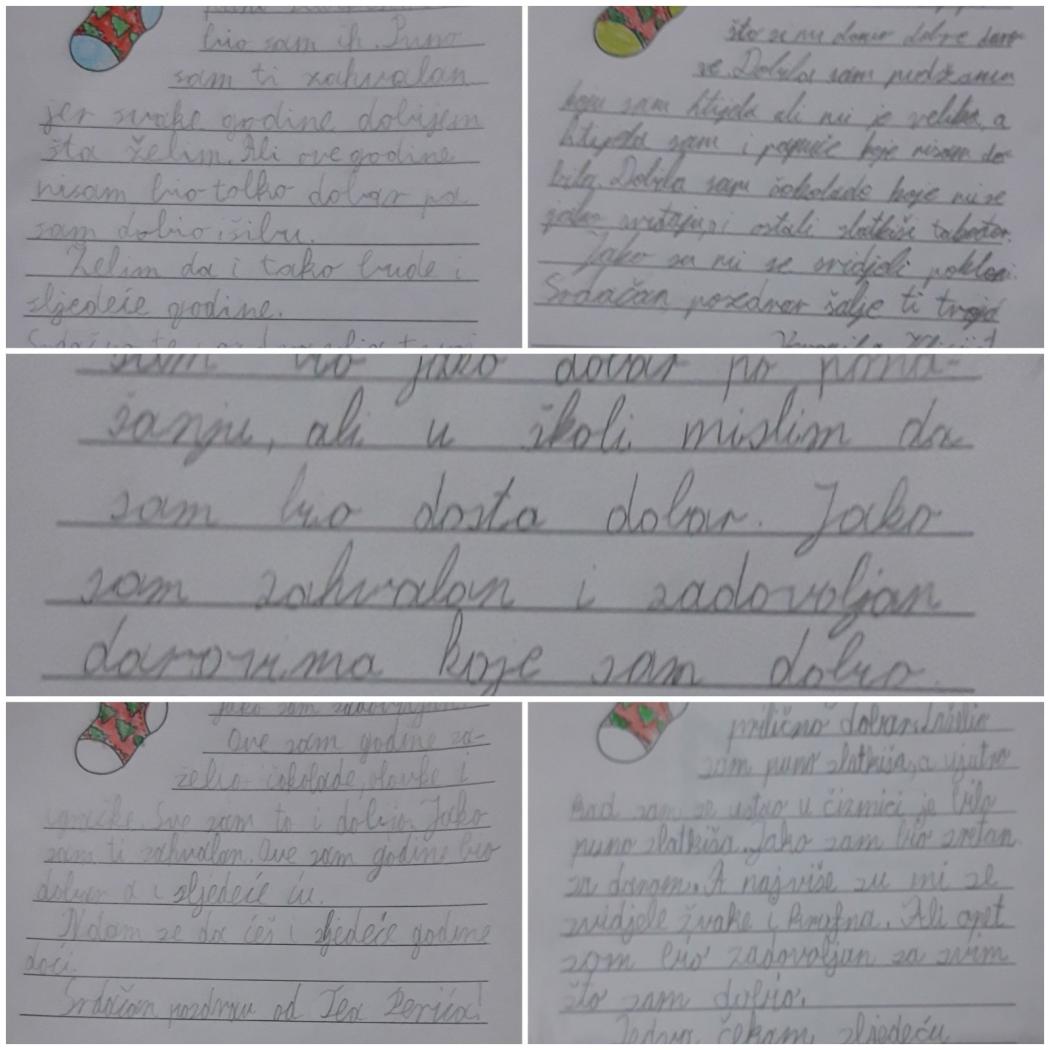 bio sam ih. Puno
sam ti zahvalan
jer svake godine dobijem
šta želim. Ali ove godine
nisam bio tolko dobar pa
sam dobio i šibu.
Želim da i tako bude i
sljedeće godine.
što se mi donio dobre daro
ve. Dobila sam pidžamu
koju sam htijela ali mi je velika, a
htijela sam i papuče koje nisam do-
bila. Dobila sam čokolade koje mi se
jako sviđaju, i ostali slatkiši također.
Jako su mi se svidjeli pokloni.
Srdačan pozdrav šalje ti tvoja
sam bio jako dobar po pona-
šanju, ali u školi mislim da
sam bio dosta dobar. Jako
sam zahvalan i zadovoljan
darovima koje sam dobio.
jako sam zadovoljan
Ove sam godine za-
želio čokolade, olovke i
igračke. Sve sam to i dobio. Jako
sam ti zahvalan. Ove sam godine bio
dobar a i sljedeće ću.
Nadam se da ćeš i sljedeće godine
doći.
Srdačan pozdrav od
prilično dobar.
sam puno slatkiša, a ujutro
kad sam se ustao u čizmici je bilo
puno slatkiša. Jako sam bio sretan
za darom. A najviše su mi se
svidjele žvake i. Ali opet
sam bio zadovoljan sa svim
što sam dobio.
Jedva čekam sljedeću